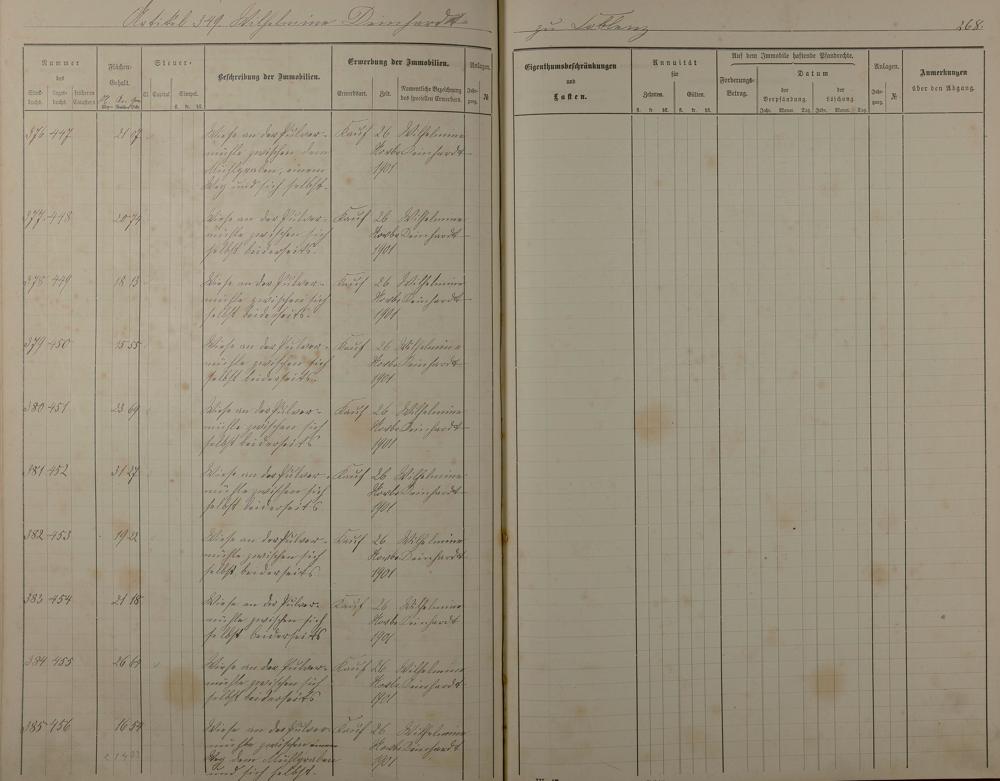 Artikel 349. Wilhelmine Deinhardt zu Coblenz 268.
Nummer
des
Stock-
buchs.
Lager-
buchs.
früheren
Catasters
Flächen-
Gehalt.
Steuer-
Cl. Capital. Simpel.
fl. kr. hl.
Beschreibung der Immobilien.
Erwerbung der Immobilien.
Erwerbsart.
Zeit.
Namentliche Bezeichnung
des speziellen Erwerbers.
Anlagen.
Jahr-
gang.
№
Eigenthumsbeschränkungen
und
Lasten.
Annuität
für
Zehnten.
Gilten.
fl. kr. hl.
fl. kr. hl.
Auf dem Immobile haftende Pfandrechte.
Forderungs-
Betrag.
Datum
der
Verpfändung.
der
Löschung
Jahr. Monat. Tag.
Jahr. Monat. Tag.
Anlagen.
Jahr-
gang.
№
Anmerkungen
über den Abgang.
376 447 21 07 Wiese an der Pulver- Kauf 26 Wilhelmine
mühle zwischen dem Novbr Deinhardt
Mühlgraben, einem 1901
Weg und sich selbst.
377 448 20 74 Wiese an der Pulver- Kauf 26 Wilhelmine
mühle zwischen sich Novbr Deinhardt
selbst beiderseits. 1901
378 449 18 13 Wiese an der Pulver- Kauf 26 Wilhelmine
mühle zwischen sich Novbr Deinhardt
selbst beiderseits. 1901
379 450 15 55 Wiese an der Pulver- Kauf 26 Wilhelmine
mühle zwischen sich Novbr Deinhardt
selbst beiderseits. 1901
380 451 23 69 Wiese an der Pulver- Kauf 26 Wilhelmine
mühle zwischen sich Novbr Deinhardt
selbst beiderseits 1901
381 452 31 27 Wiese an der Pulver- Kauf 26 Wilhelmine
mühle zwischen sich Novbr Deinhardt
selbst beiderseits 1901
382 453 19 22 Wiese an der Pulver- Kauf 26 Wilhelmine
mühle zwischen sich Novbr Deinhardt
selbst beiderseits 1901
383 454 21 18 Wiese an der Pulver- Kauf 26 Wilhelmine
mühle zwischen sich Novbr Deinhardt
selbst beiderseits 1901
384 455 26 64 Wiese an der Pulver- Kauf 26 Wilhelmine
mühle zwischen sich Novbr Deinhardt
selbst beiderseits 1901
385 456 16 54 Wiese an der Pulver- Kauf 26 Wilhelmine
mühle zwischen einem Novbr Deinhardt
Weg dem Mühlgraben 1901
und sich selbst.